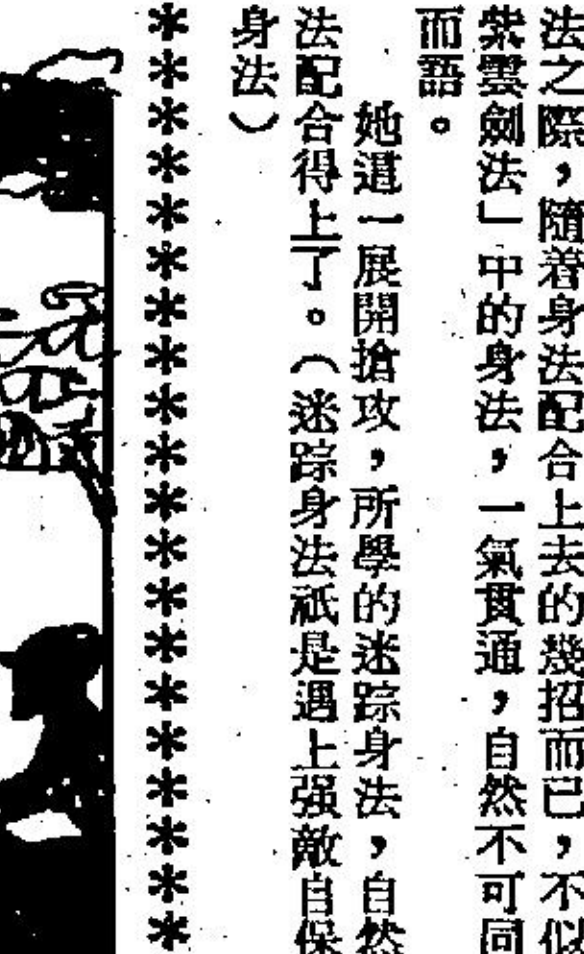 法之際，隨着身法配合上去的幾招而已，不似
紫雲劍法」中的身法，一氣貫通，自然不可同
而語。
她這一展開搶攻，所學的迷踪身法，自然
法配合得上了。（迷踪身法祇是遇上强敵自保
身法）
＊＊＊＊＊＊＊＊＊＊＊＊＊＊＊＊＊＊＊